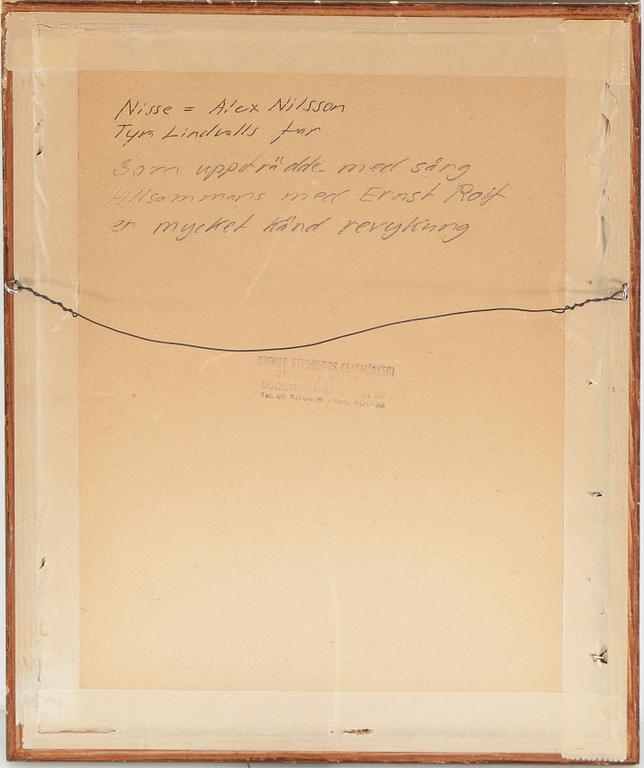 Nisse = Alex Nilsson
Tyra Lindvalls far
som uppträdde med sång
tillsammans med Ernst Rolf
en mycket känd revykung
STENBERGS GLASMÄSTERI